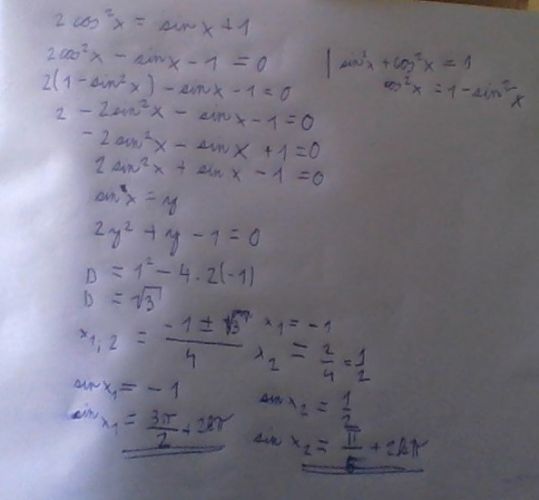 2cos²x = sinx + 1
2cos²x - sinx - 1 = 0
| sin²x + cos²x = 1
cos²x = 1 - sin²x
2(1 - sin²x) - sinx - 1 = 0
2 - 2sin²x - sinx - 1 = 0
-2sin²x - sinx + 1 = 0
2sin²x + sinx - 1 = 0
sin x = y
2y² + y - 1 = 0
D = 1² - 4.2(-1)
D = √3
x₁,₂ = (-1 ± √3)/4
x₁ = -1
x₂ = 2/4 = 1/2
sinx₁ = -1
sinx₁ = 3π/2 + 2kπ
sinx₂ = 1/2
sin x₂ = π/6 + 2kπ